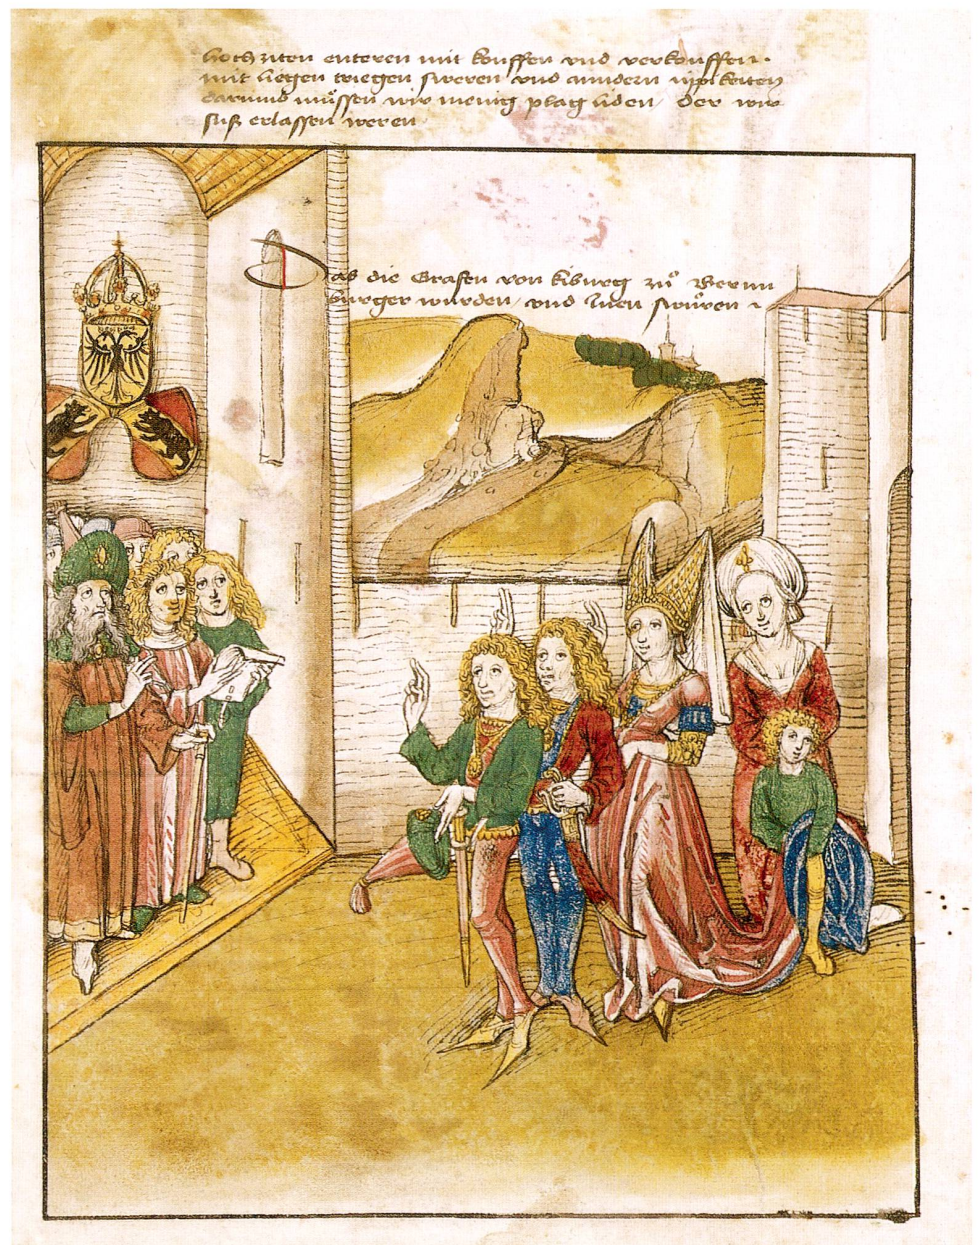 hoch ziten enteren mit kouffen und verkouffen.
mit liegen triegen sweren und anndern üppikeiten
darumb müssen wir menig plag liden / der wir
sust erlassen weren
Das die Grafen von kiburg zů Bernn
burger wurden / und inen swůren